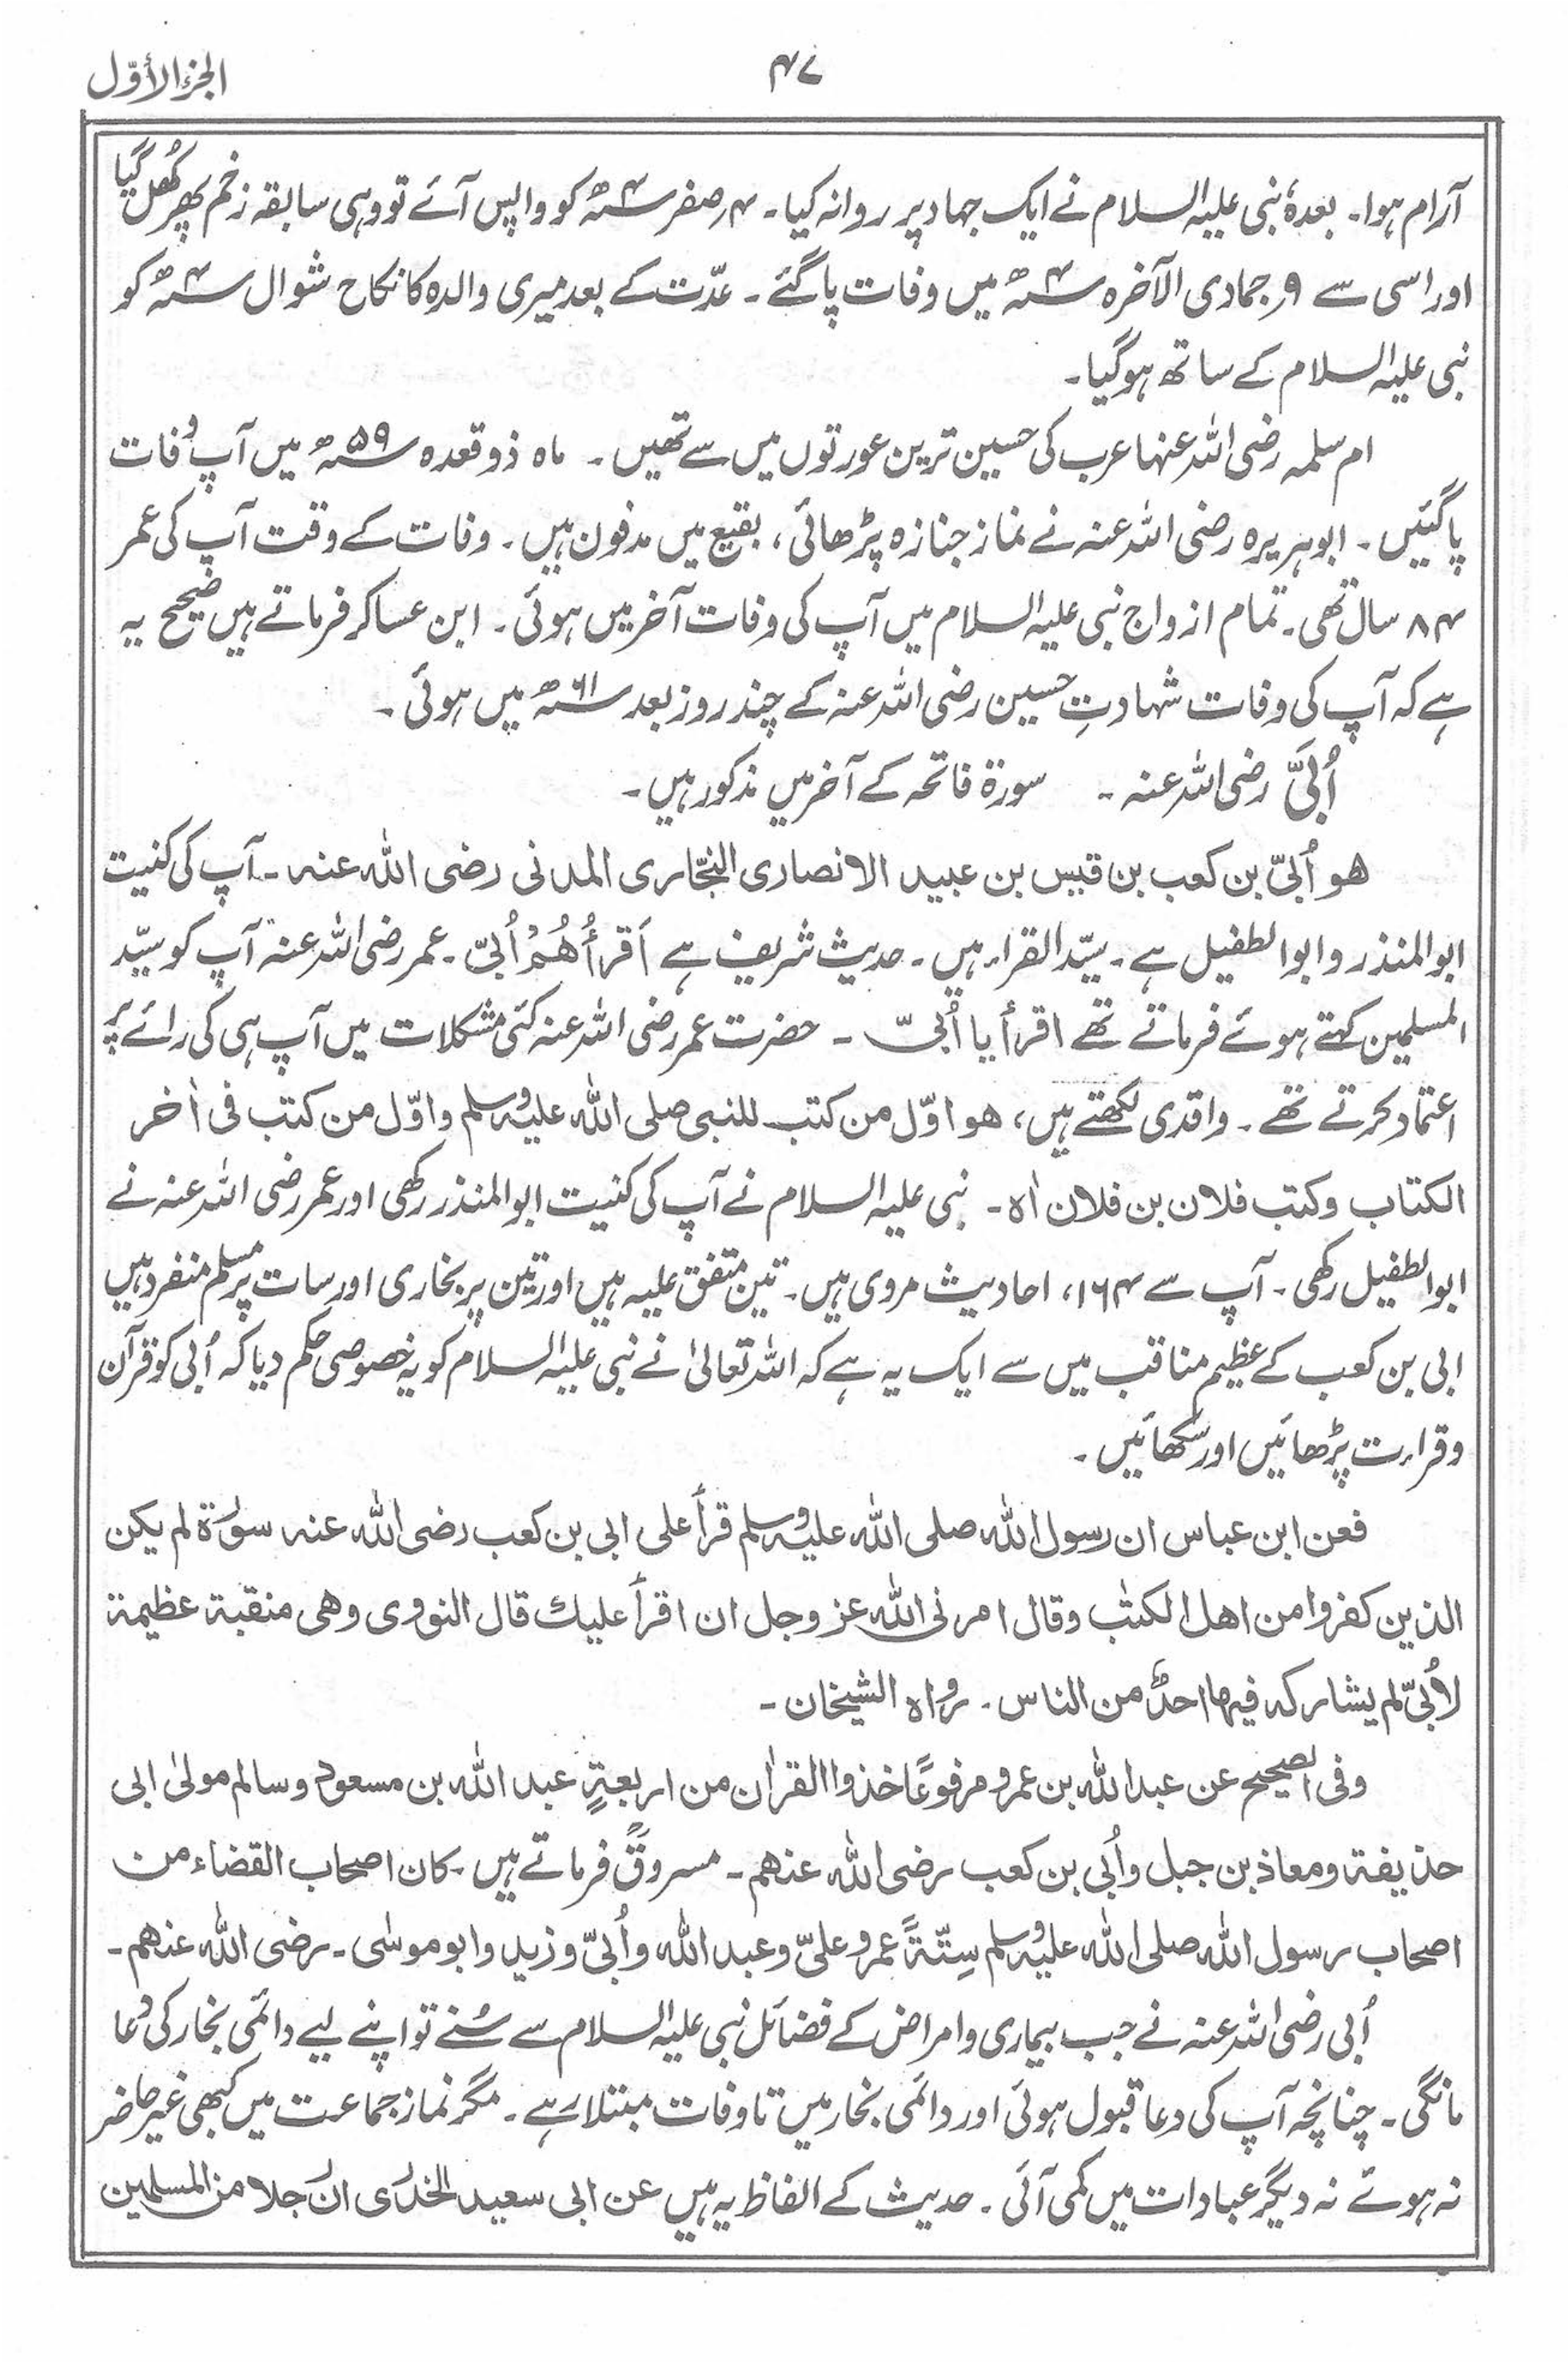 الجزء الأوّل
۴۷
آرام ہوا۔ بعدہٗ نبی علیہ السلام نے ایک جہاد پر روانہ کیا۔ ۴ر صفر ۴ھ؁ کو واپس آئے تو وہی سابقہ زخم پھر کُھل گیا
اور اسی سے ۹ر جمادی الآخرہ ۴ھ؁ میں وفات پاگئے۔ عدّت کے بعد میری والدہ کا نکاح شوال ۴ھ؁ کو
نبی علیہ السلام کے ساتھ ہوگیا۔
ام سلمہ رضی اللہ عنہا عرب کی حسین ترین عورتوں میں سے تھیں۔ ماہ ذوقعدہ ۵۹ھ؁ میں آپ وفات
پاگئیں۔ ابوہریرہ رضی اللہ عنہ نے نماز جنازہ پڑھائی، بقیع میں مدفون ہیں۔ وفات کے وقت آپ کی عمر
۸۴ سال تھی۔ تمام ازواج نبی علیہ السلام میں آپ کی وفات آخر میں ہوئی۔ ابن عساکر فرماتے ہیں صحیح یہ
ہے کہ آپ کی وفات شہادتِ حسین رضی اللہ عنہ کے چند روز بعد ۶۱ھ؁ میں ہوئی۔
اُبَیّ رضی اللہ عنہ۔ سورۃ فاتحہ کے آخر میں مذکور ہیں۔
ھو اُبَیّ بن کعب بن قیس بن عبید الانصاری النجّاری المدنی رضی اللہ عنہ۔ آپ کی کنیت
ابو المنذر و ابو الطفیل ہے۔ سیّد القراء ہیں۔ حدیث شریف ہے اَقرأُھُمْ اُبَیّ۔ عمر رضی اللہ عنہ آپ کو سیّد
المسلمین کہتے ہوئے فرماتے تھے اقرأ یا اُبَیّ۔ حضرت عمر رضی اللہ عنہ کئی مشکلات میں آپ ہی کی رائے پر
اعتماد کرتے تھے۔ واقدی لکھتے ہیں، ھو اوّل من کتب للنبی صلی اللہ علیہ وسلم واوّل من کتب فی اٰخر
الکتاب وکتب فلان بن فلان اھ۔ نبی علیہ السلام نے آپ کی کنیت ابو المنذر رکھی اور عمر رضی اللہ عنہ نے
ابو الطفیل رکھی۔ آپ سے ۱۶۴، احادیث مروی ہیں۔ تین متفق علیہ ہیں اور تین پر بخاری اور سات پر مسلم منفرد ہیں
ابی بن کعب کے عظیم مناقب میں سے ایک یہ ہے کہ اللہ تعالیٰ نے نبی علیہ السلام کو یہ خصوصی حکم دیا کہ اُبی کو قرآن
و قراءت پڑھائیں اور سکھائیں۔
فعن ابن عباس ان رسول اللہ صلی اللہ علیہ وسلم قرأ علی ابی بن کعب رضی اللہ عنہ سورۃ لم یکن
الذین کفروا من اھل الکتٰب وقال امرنی اللہ عز وجل ان اقرأ علیك قال النووی وھی منقبۃ عظیمۃ
لاُبَیّ لم یشارکہ فیھا احدٌ من الناس۔ رواہ الشیخان۔
وفی الصحیح عن عبد اللہ بن عمرو مرفوعًا خذوا القراٰن من اربعۃٍ عبد اللہ بن مسعود و سالم مولیٰ ابی
حذیفۃ ومعاذ بن جبل واُبی بن کعب رضی اللہ عنھم۔ مسروقؒ فرماتے ہیں۔ کان اصحاب القضاء من
اصحاب رسول اللہ صلی اللہ علیہ وسلم سِتّۃً عمر و علیّ و عبد اللہ و اُبَیّ و زید و ابو موسٰی۔ رضی اللہ عنھم۔
اُبی رضی اللہ عنہ نے جب بیماری و امراض کے فضائل نبی علیہ السلام سے سُنے تو اپنے لیے دائمی بخار کی دعا
مانگی۔ چنانچہ آپ کی دعا قبول ہوئی اور دائمی بخار میں تا وفات مبتلا رہے۔ مگر نماز جماعت میں کبھی غیر حاضر
نہ ہوئے نہ دیگر عبادات میں کمی آئی۔ حدیث کے الفاظ یہ ہیں عن ابی سعید الخدری ان رجلا من المسلمین